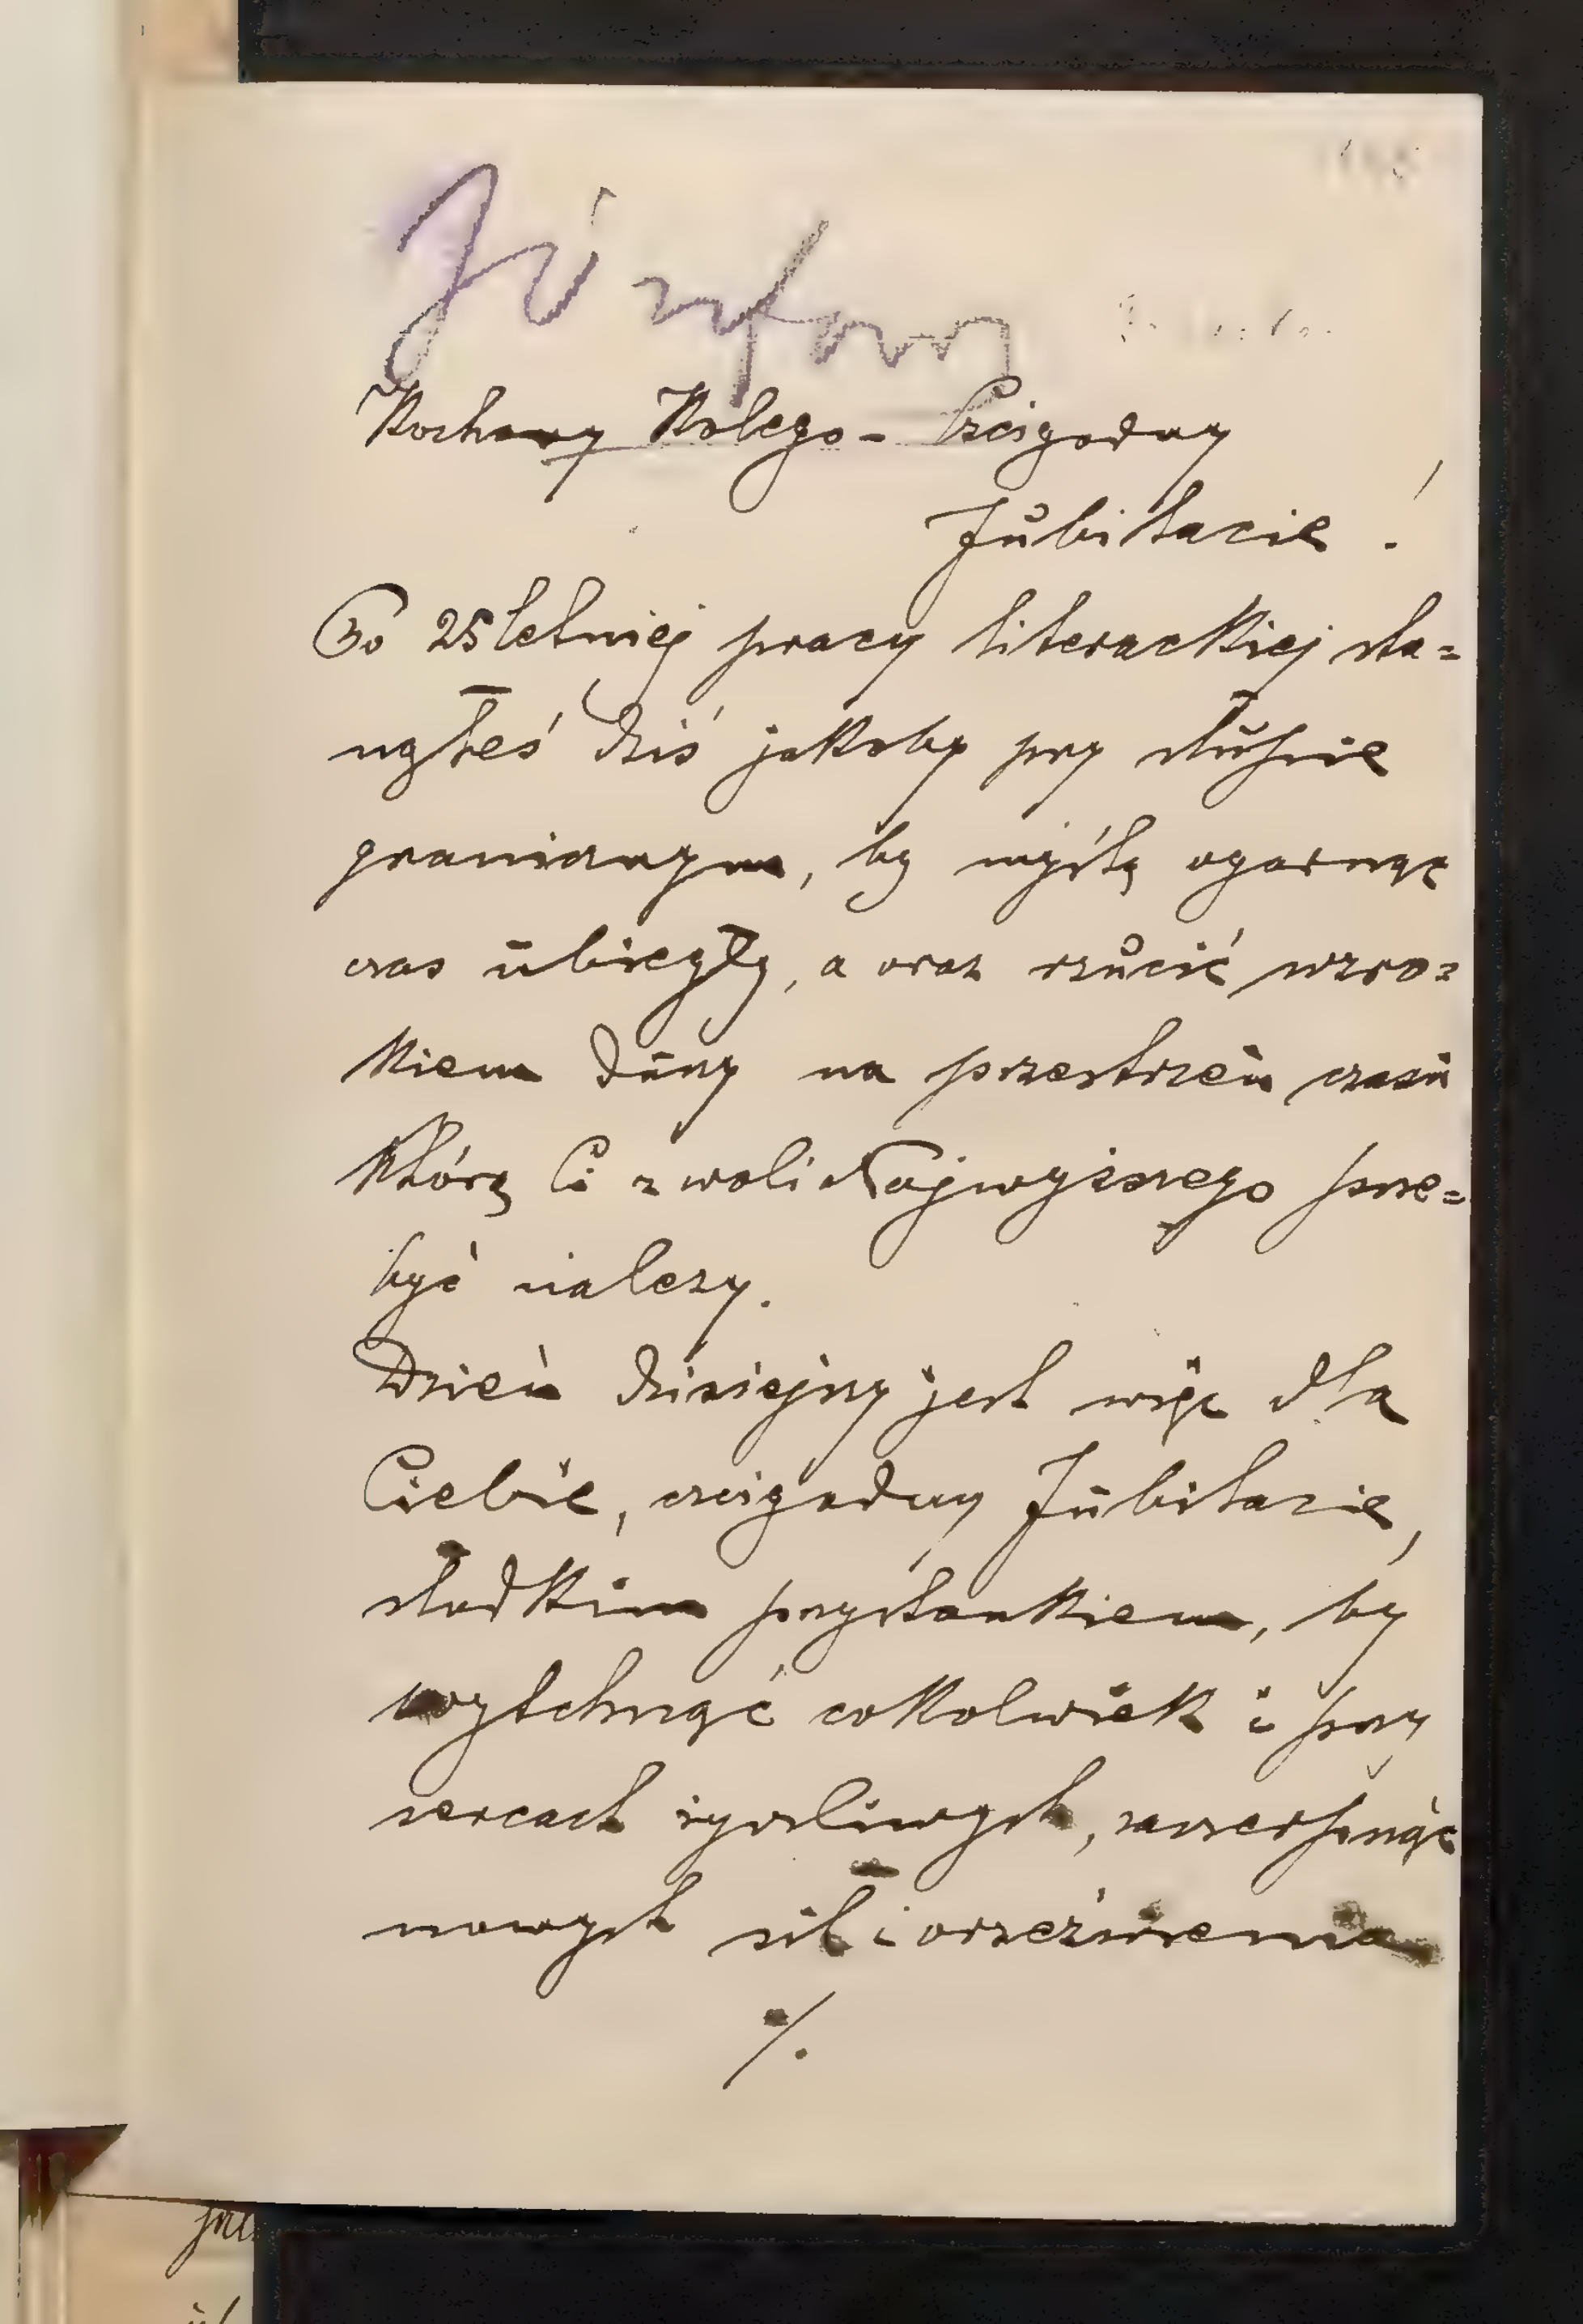 Kochany Kolego - Czcigodny
Jubilacie!
Po 25 letniej pracy literackiej sta=
nąłeś dziś jakoby przy słupie
granicznym, by myślą ogarnąć
czas ubiegły, a oraz rzucić wzro=
kiem duszy na przestrzeń czasu
którą Ci z woli Najwyższego prze=
być należy.
Dzień dzisiejszy jest więc dla
Ciebie, czcigodny Jubilacie,
słodkim przystankiem, by
wytchnąć cokolwiek i przy
sercach życzliwych, zaczerpnąć
nowych sił i orzeźwienia
%